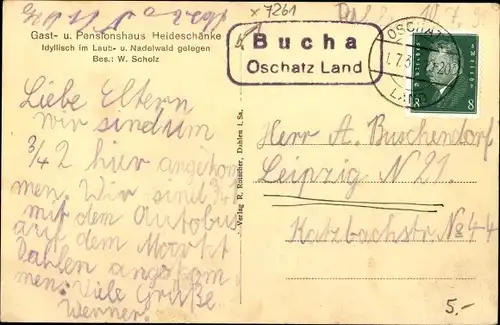 x 7261
Gast- u. Pensionshaus Heideschänke
Idyllisch im Laub- u. Nadelwald gelegen
Bes.: W. Scholz
Bucha
Oschatz Land
OSCHATZ
LAND
8 8
Liebe Eltern
wir sind um
3/4 2 hier angekom
men. Wir sind 3/4
mit dem Autobus
auf dem Markt
Dahlen angekom
men. Viele Grüße
Werner.
Verlag R. Rüscher, Dahlen i. Sa.
Herr A. Buschendorf
Leipzig N 21.
Katzbachstr. No 44
5.-